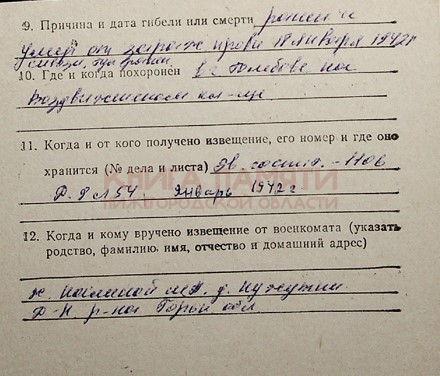 9. Причина и дата гибели или смерти ранен и
умер от зараж. крови 18 января 1942 г
10. Где и когда похоронен в г.
Воздвиженском кл-ще
11. Когда и от кого получено извещение, его номер и где оно
хранится (№ дела и листа) Эв. госпит. - Нов
Д. 8 л 54 январь 1942 г
КНИГА ПАМЯТИ
НИЖЕГОРОДСКОЙ ОБЛАСТИ
12. Когда и кому вручено извещение от военкомата (указать
родство, фамилию, имя, отчество и домашний адрес)
д.
Д-К р-на Горьк обл